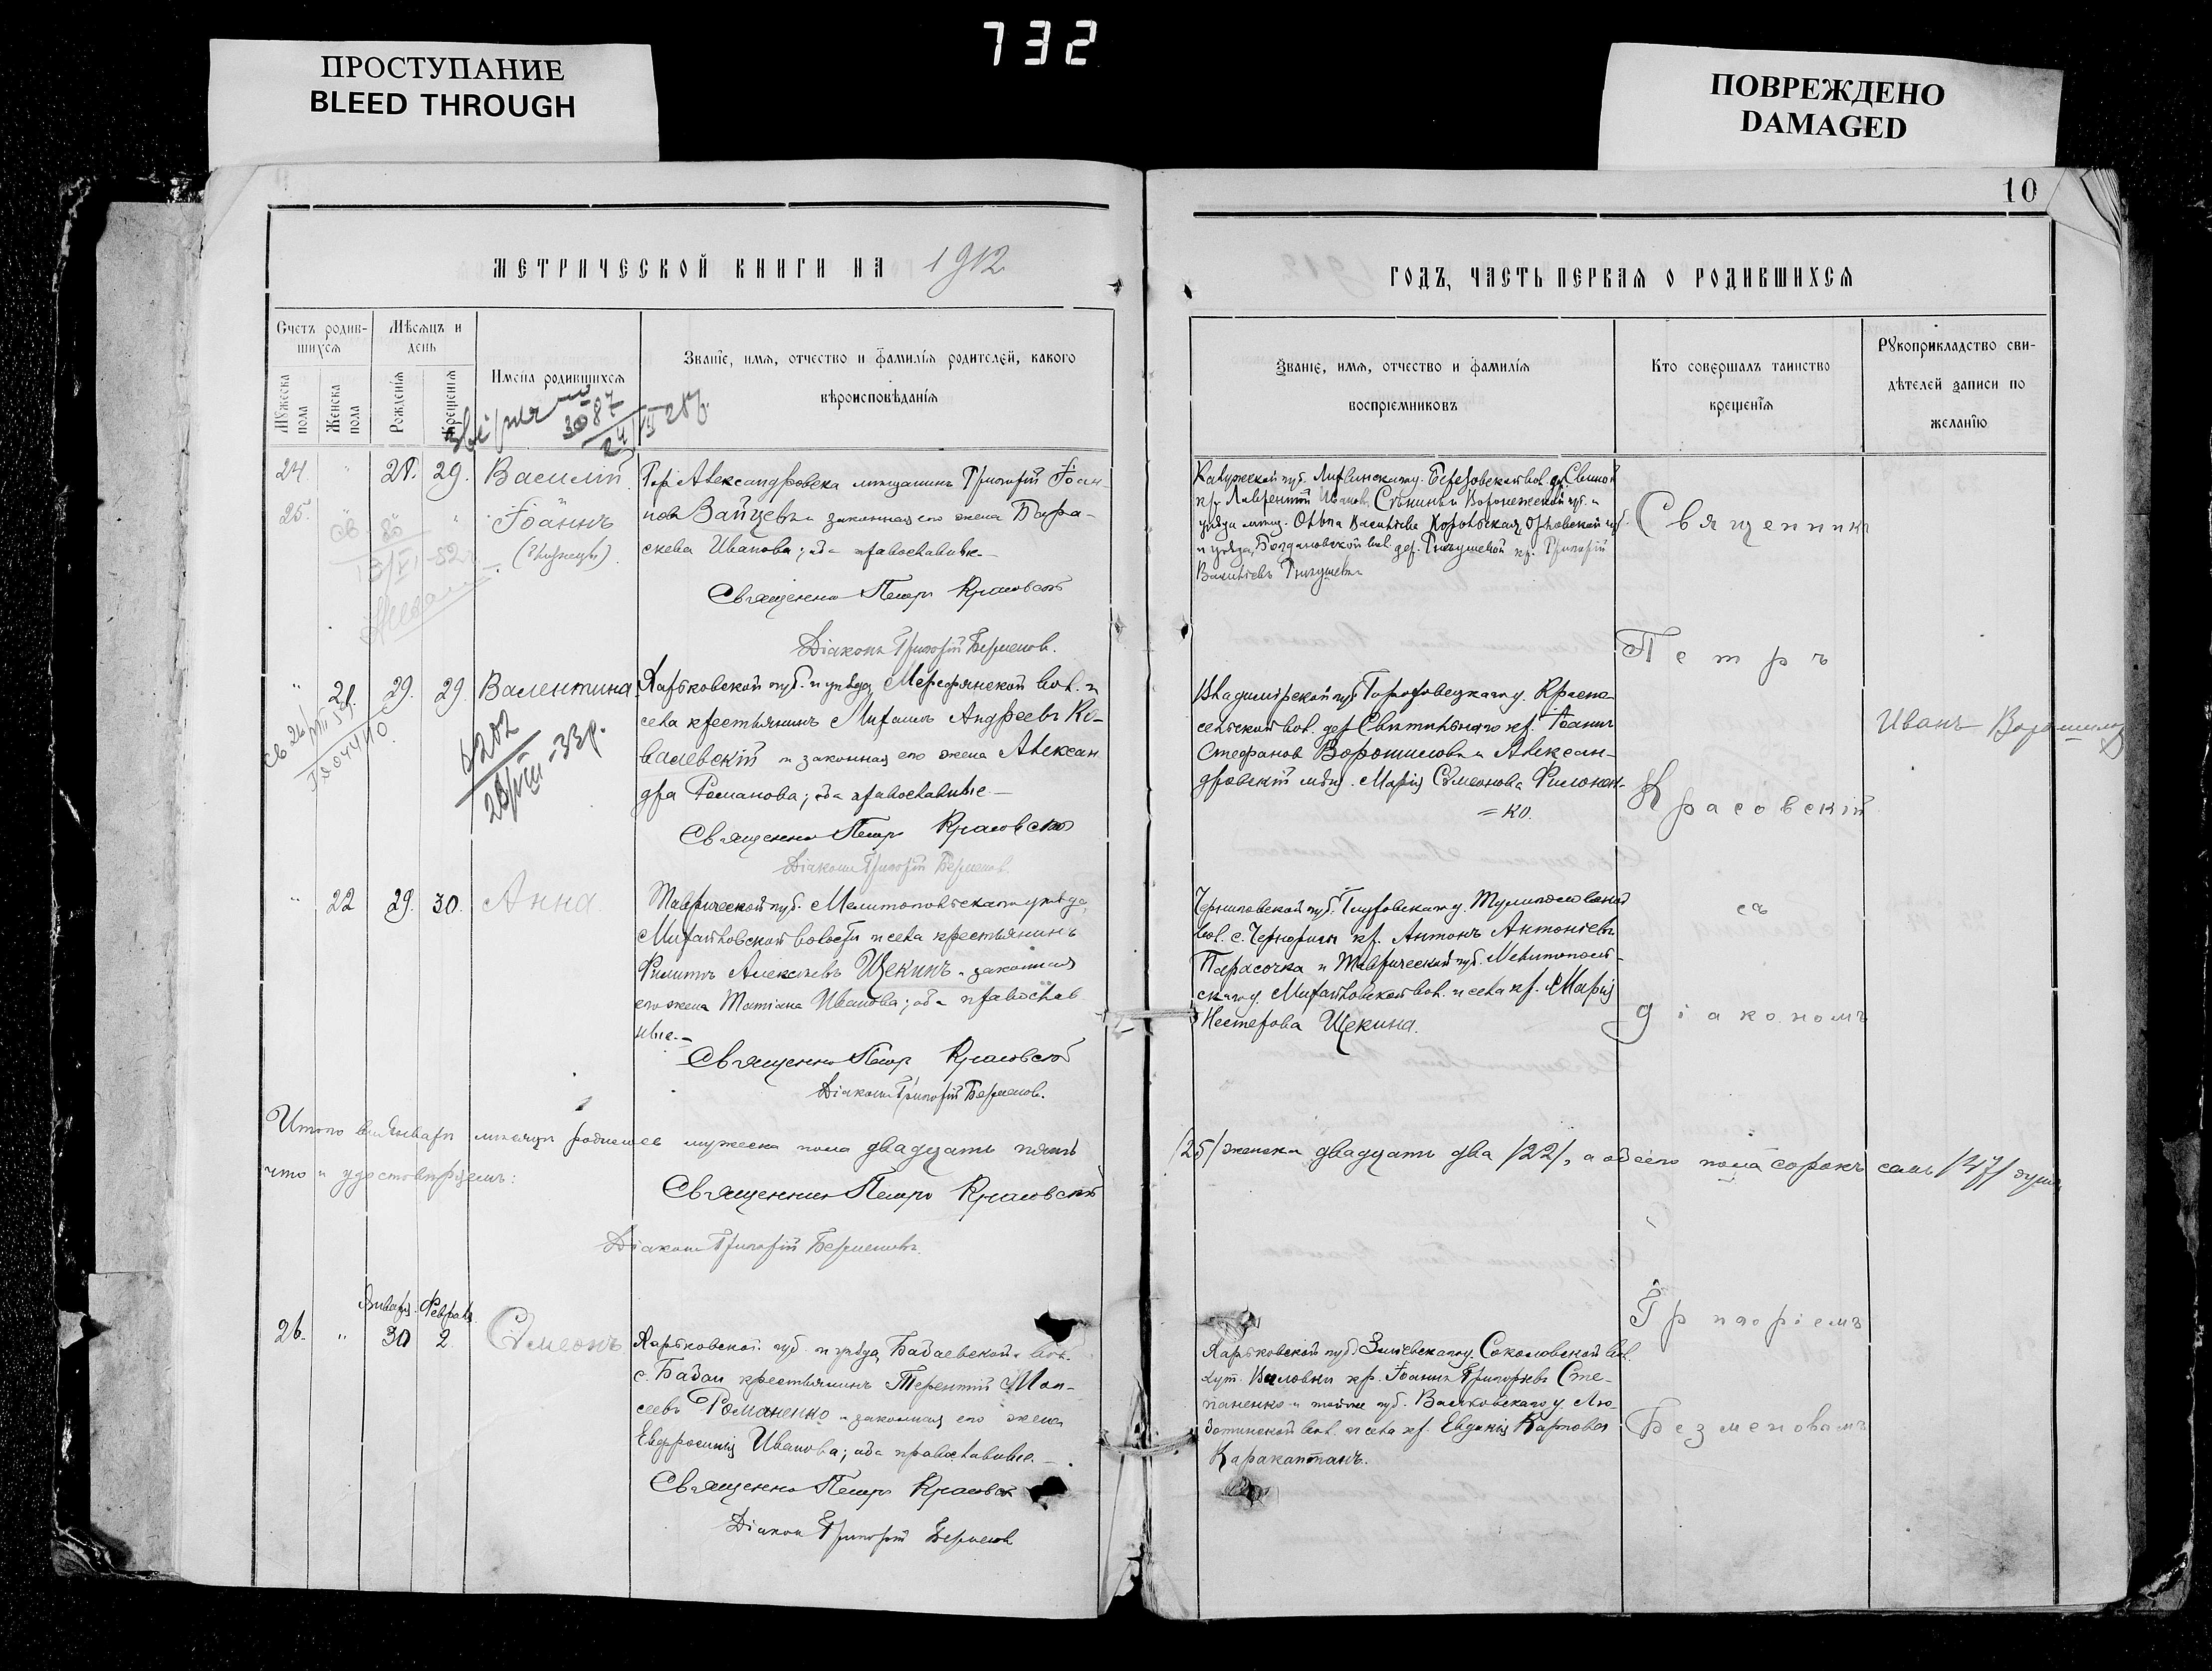 732
ПРОСТУПАНИЕ
BLEED THROUGH
ПОВРЕЖДЕНО
DAMAGED
10
МЕТРИЧЕСКОЙ КНИГИ НА 1912
ГОДЪ, ЧАСТЬ ПЕРВАЯ О РОДИВШИХСЯ
Счетъ родив-
шихся
Мужеска пола
Женска пола
Мѣсяцъ и
день
Рожденія
Крещенія
Имена родившихся
Званіе, имя, отчество и фамилія родителей, какого
вѣроисповѣданія
Званіе, имя, отчество и фамилія
воспріемниковъ
Кто совершалъ таинство
крещенія
Рукоприкладство сви-
дѣтелей записи по
желанію
3087
24. " 28. 29. Василій
25. " " " Іоаннъ
(близнецы).
Гор. Александровска мѣщанинъ Григорій Іоан-
новъ Зайцевъ и законная его жена Пара-
скева Иванова; оба православные.
Священникъ Петръ Красовскій
Діаконъ Григорій Безменовъ.
Калужской губ. Лихвинскаго у. Березовской вол. д.
кр. Лаврентій Ивановъ и Воронежской губ. и
уѣзда мѣщ. Ольга Васильева Орловской губ.
и уѣзда, Богдановской вол. дер. кр. Григорій
Васильевъ
" 21. 29. 29. Валентина
Харьковской губ. и уѣзда, Мерефянской вол. и
села крестьянинъ Михаилъ Андреевъ Ко-
валевскій и законная его жена Алексан-
дра Романова; оба православные.
Священникъ Петръ Красовскій
Діаконъ Григорій Безменовъ.
28/VIII-33г.
Владимірской губ. Гороховецкаго у. Красно-
сельской вол. дер. кр. Іоаннъ
Стефановъ Ворошиловъ и Алексан-
дровскій мѣщ. Марія Сѵмеонова Филонен-
=ко.
Иванъ Ворошиловъ
" 22 29. 30. Анна.
Таврической губ. Мелитопольскаго уѣзда,
Михайловской волости и села крестьянинъ
Филиппъ Алексѣевъ Щекинъ и законная
его жена Татіана Иванова; оба православ-
ные.
Священникъ Петръ Красовскій
Діаконъ Григорій Безменовъ.
Черниговской губ. Глуховскаго у. Тулиголовской
вол. с. кр. Антонъ Антоніевъ
Парасочка и Таврической губ. Мелитополь-
скаго у. Михайловской вол. и села кр. Марія
Нестерова Щекина.
Священникъ
Петръ
Красовскій
съ
діакономъ
Григоріемъ
Безменовымъ
Итого въ Январѣ мѣсяцѣ родилось мужеска пола двадцать пять /25/ женска двадцать два /22/, а обоего пола сорокъ семь /47/ душъ
что и удостовѣряемъ:
Священникъ Петръ Красовскій
Діаконъ Григорій Безменовъ.
Января. Февраля.
26. " 30 2. Сѵмеонъ
Харьковской губ. и уѣзда, Бабаевской вол.
с. Бабаи крестьянинъ Терентій Мои-
сеевъ Романенко и законная его жена
Евфросинія Иванова; оба православные.
Священникъ Петръ Красовск
Діаконъ Григорій Безменовъ
Харьковской губ. Зміевскаго у. Соколовской вол.
хут. кр. Іоаннъ Григорьевъ Сте-
паненко и той же губ. Валковскаго у. Лю-
ботинской вол. и села кр. Евдокія Карпова